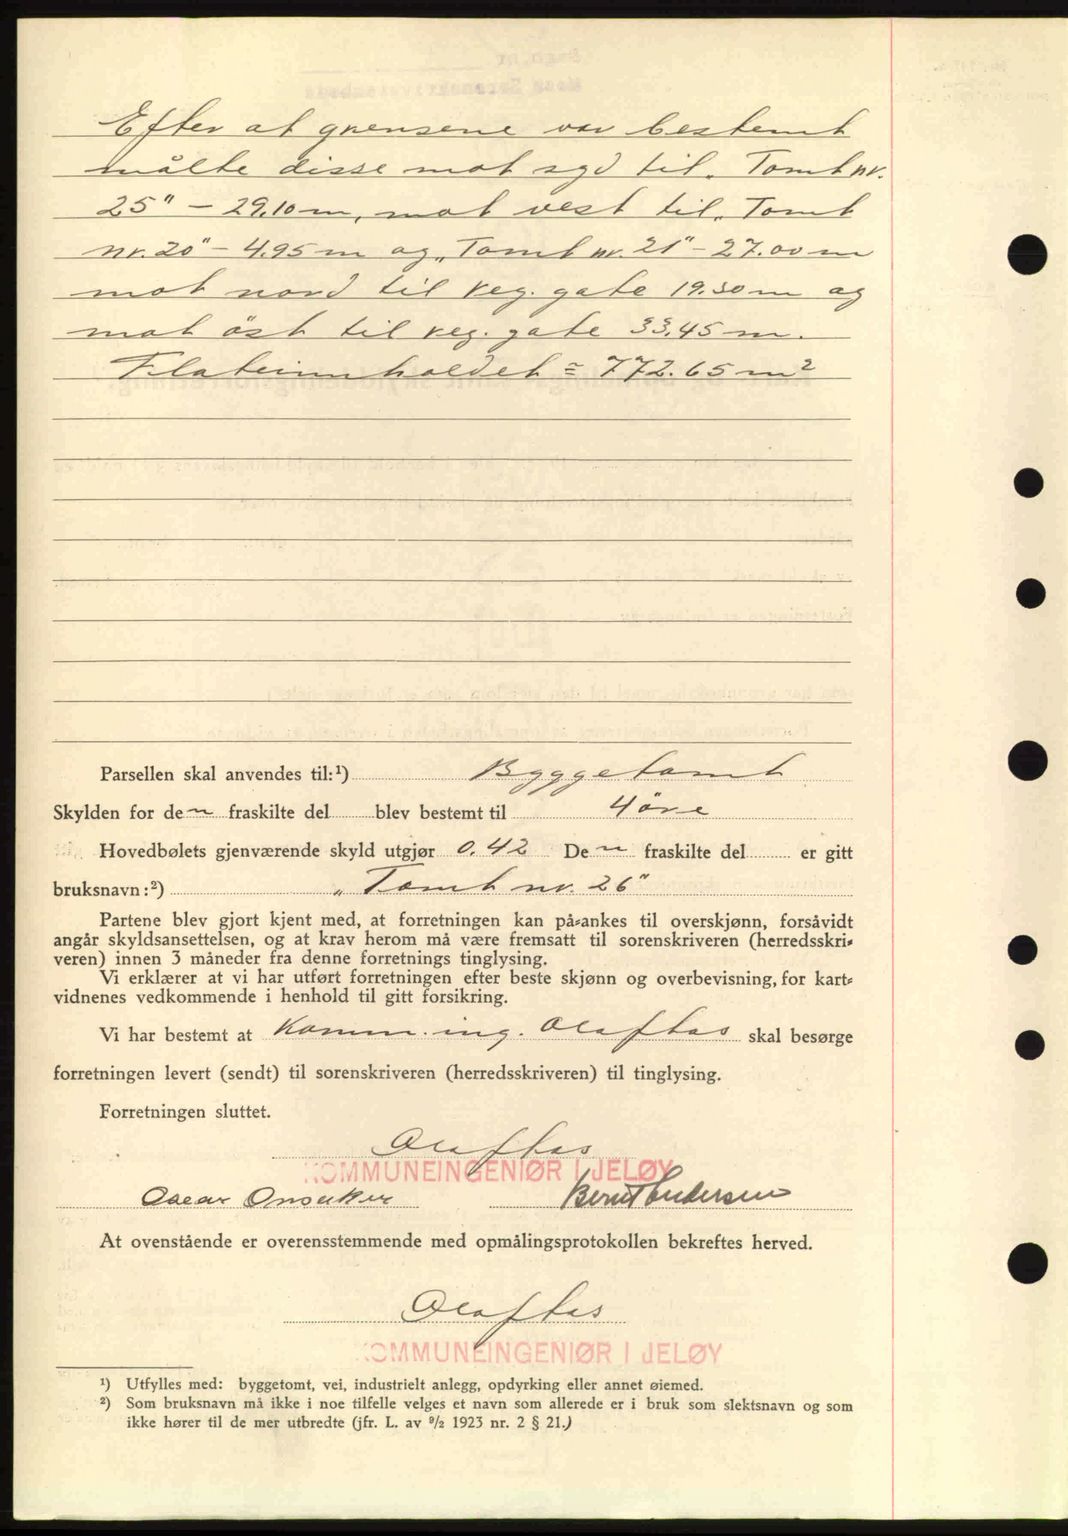 Efter at grensene var bestemt
målte disse mot syd til „Tomt nr.
25" – 29.10 m, mot vest til „Tomt
nr. 20" – 4.95 m og „Tomt nr. 21" – 27.00 m
mot nord til reg. gate 19.30 m og
mot öst til reg. gate 33.45 m.
Flateinnholdet = 772.65 m²
Parsellen skal anvendes til:¹) Byggetomt
Skylden for den fraskilte del blev bestemt til 4 öre
Hovedbølets gjenværende skyld utgjør 0.42 Den fraskilte del er gitt
bruksnavn:²) „Tomt nr. 26"
Partene blev gjort kjent med, at forretningen kan på-ankes til overskjønn, forsåvidt
angår skyldsansettelsen, og at krav herom må være fremsatt til sorenskriveren (herredsskri-
veren) innen 3 måneder fra denne forretnings tinglysing.
Vi erklærer at vi har utført forretningen efter beste skjønn og overbevisning, for kart-
vidnenes vedkommende i henhold til gitt forsikring.
Vi har bestemt at Komm. ing. Olaf Aas skal besørge
forretningen levert (sendt) til sorenskriveren (herredsskriveren) til tinglysing.
Forretningen sluttet.
Olaf Aas
KOMMUNEINGENIØR I JELØY
Oscar Bernt Andersen
At ovenstående er overensstemmende med opmålingsprotokollen bekreftes herved.
Olaf Aas
KOMMUNEINGENIØR I JELØY
¹) Utfylles med: byggetomt, vei, industrielt anlegg, opdyrking eller annet øiemed.
²) Som bruksnavn må ikke i noe tilfelle velges et navn som allerede er i bruk som slektsnavn og som
ikke hører til de mer utbredte (jfr. L. av ⁹/₂ 1923 nr. 2 § 21.)